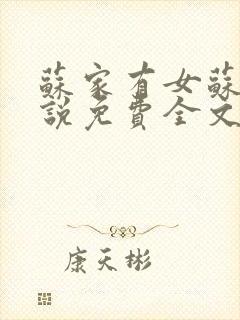 蘇家有女蘇
說免費全文
康天彬